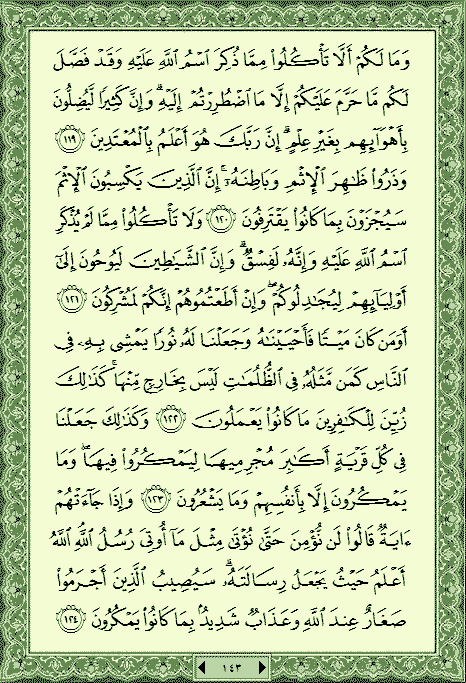 وَمَا لَكُمْ أَلَّا تَأْكُلُوا۟ مِمَّا ذُكِرَ ٱسْمُ ٱللَّهِ عَلَيْهِ وَقَدْ فَصَّلَ
لَكُم مَّا حَرَّمَ عَلَيْكُمْ إِلَّا مَا ٱضْطُرِرْتُمْ إِلَيْهِ ۗ وَإِنَّ كَثِيرًا لَّيُضِلُّونَ
بِأَهْوَآئِهِم بِغَيْرِ عِلْمٍ ۗ إِنَّ رَبَّكَ هُوَ أَعْلَمُ بِٱلْمُعْتَدِينَ ١١٩
وَذَرُوا۟ ظَـٰهِرَ ٱلْإِثْمِ وَبَاطِنَهُۥٓ ۚ إِنَّ ٱلَّذِينَ يَكْسِبُونَ ٱلْإِثْمَ
سَيُجْزَوْنَ بِمَا كَانُوا۟ يَقْتَرِفُونَ ١٢٠ وَلَا تَأْكُلُوا۟ مِمَّا لَمْ يُذْكَرِ
ٱسْمُ ٱللَّهِ عَلَيْهِ وَإِنَّهُۥ لَفِسْقٌ ۗ وَإِنَّ ٱلشَّيَـٰطِينَ لَيُوحُونَ إِلَىٰٓ
أَوْلِيَآئِهِمْ لِيُجَـٰدِلُوكُمْ ۖ وَإِنْ أَطَعْتُمُوهُمْ إِنَّكُمْ لَمُشْرِكُونَ ١٢١
أَوَمَن كَانَ مَيْتًا فَأَحْيَيْنَـٰهُ وَجَعَلْنَا لَهُۥ نُورًا يَمْشِى بِهِۦ فِى
ٱلنَّاسِ كَمَن مَّثَلُهُۥ فِى ٱلظُّلُمَـٰتِ لَيْسَ بِخَارِجٍ مِّنْهَا ۚ كَذَٰلِكَ
زُيِّنَ لِلْكَـٰفِرِينَ مَا كَانُوا۟ يَعْمَلُونَ ١٢٢ وَكَذَٰلِكَ جَعَلْنَا
فِى كُلِّ قَرْيَةٍ أَكَـٰبِرَ مُجْرِمِيهَا لِيَمْكُرُوا۟ فِيهَا ۖ وَمَا
يَمْكُرُونَ إِلَّا بِأَنفُسِهِمْ وَمَا يَشْعُرُونَ ١٢٣ وَإِذَا جَآءَتْهُمْ
ءَايَةٌ قَالُوا۟ لَن نُّؤْمِنَ حَتَّىٰ نُؤْتَىٰ مِثْلَ مَآ أُوتِىَ رُسُلُ ٱللَّهِ ۘ ٱللَّهُ
أَعْلَمُ حَيْثُ يَجْعَلُ رِسَالَتَهُۥ ۗ سَيُصِيبُ ٱلَّذِينَ أَجْرَمُوا۟
صَغَارٌ عِندَ ٱللَّهِ وَعَذَابٌ شَدِيدٌۢ بِمَا كَانُوا۟ يَمْكُرُونَ ١٢٤
١٤٣